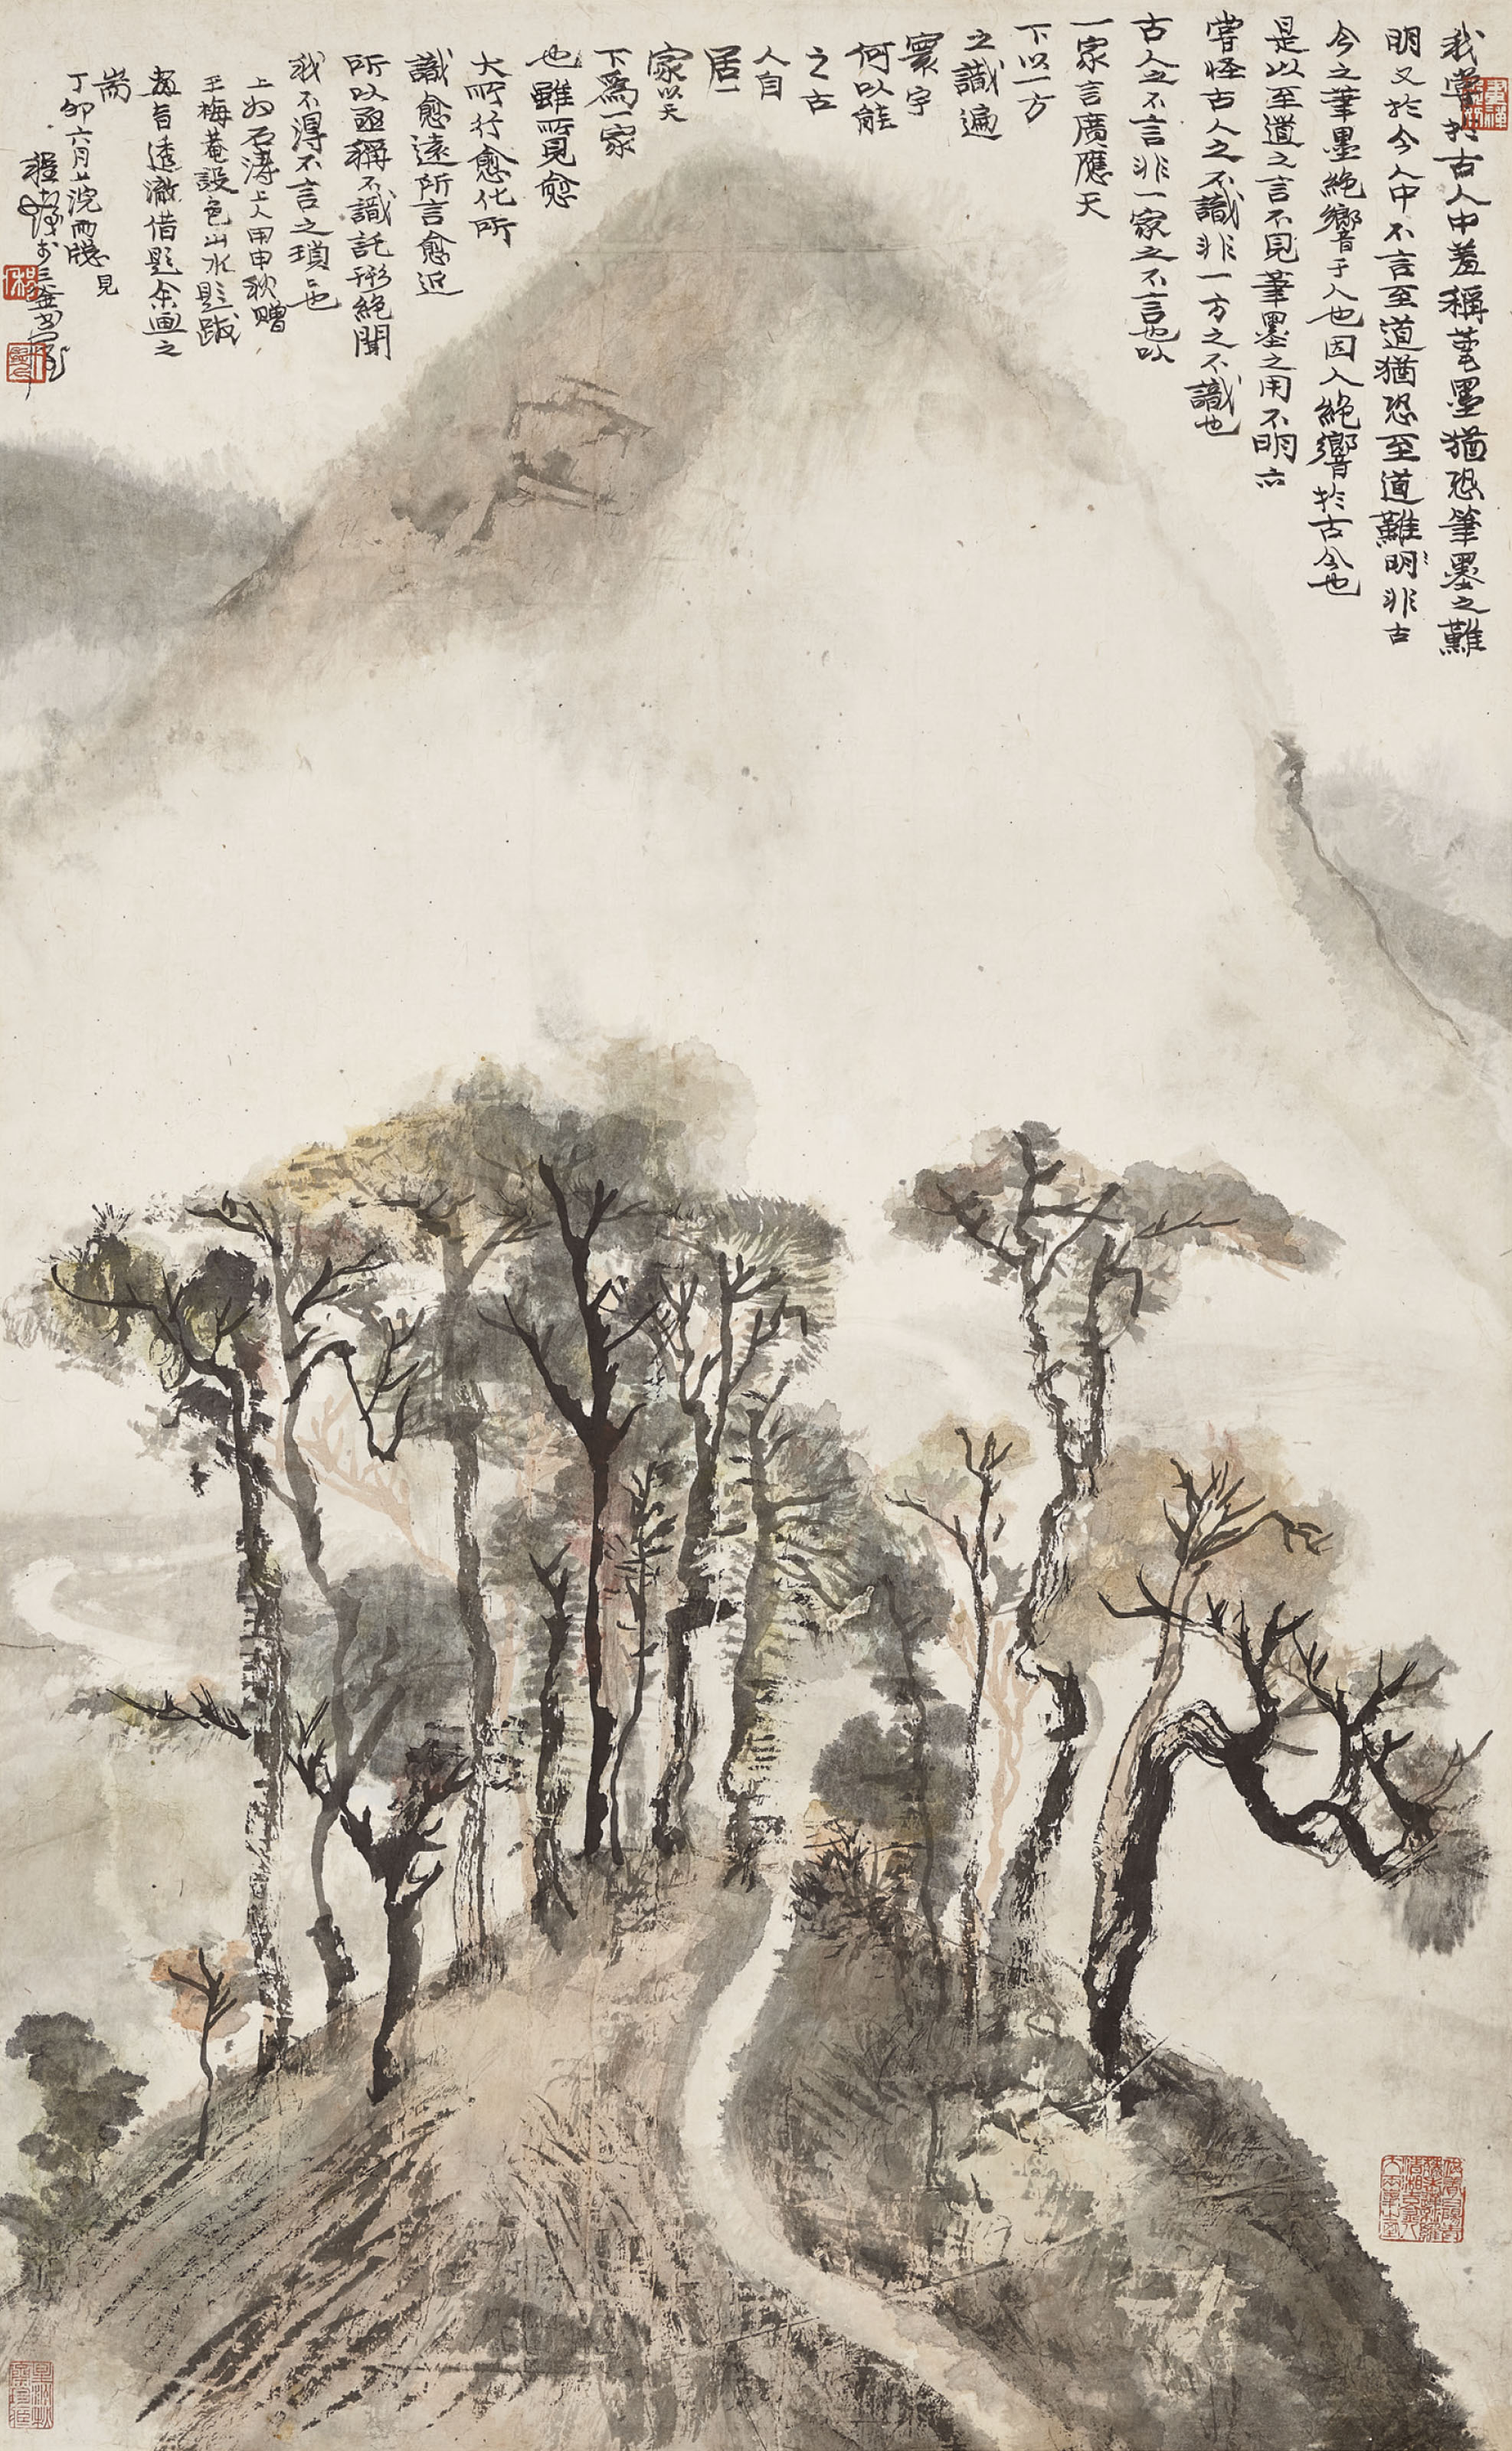 我嘗於古人中羞稱筆墨猶恐筆墨之難
明又於今人中不言至道猶恐至道難明非古
今之筆墨絕響于人也因人絕響於古今也
是以至道之言不見筆墨之用不明亦
嘗怪古人之不識非一方之不識也
古人之不言非一家之不言也以
一家言廣應天
下以一方
之識遍
寰宇
何以能
之古
人自
居一
家以天
下為一家
也雖所見愈
大所行愈化所
識愈遠所言愈近
所以亟稱不識託形絕聞
我不得不言之瑣瑣也
上為石濤上人甲申秋贈
王梅菴設色山水題跋
畫旨透澈借題余画之
耑
丁卯六月上浣雨牕見
於三釜書屋